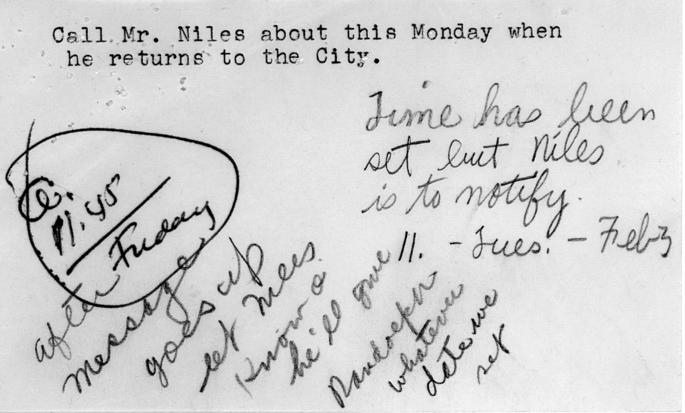 Call Mr. Niles about this Monday when
he returns to the City.
Time has been
set but Niles
is to notify.
11. - Tues. - Feb 3
11:45
Friday
after
message
goes up
let Niles
know &
he'll give
Randolph
whatever
date we
set